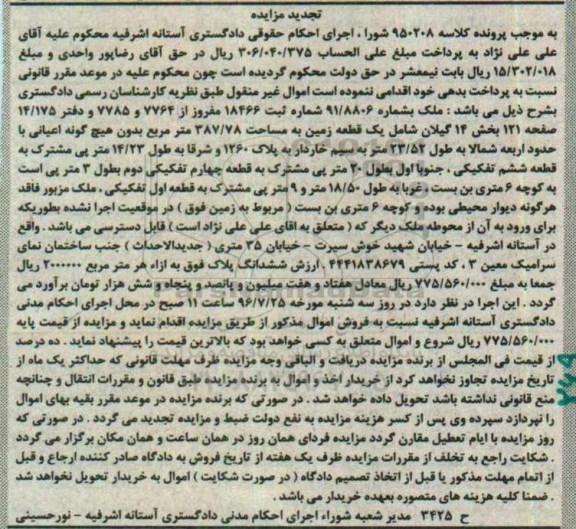 تجدید مزایده
به موجب پرونده کلاسه ۹۵۰۲۰۸ شورا ، اجرای احکام حقوقی دادگستری آستانه اشرفیه محکوم علیه آقای
علی علی نژاد به پرداخت مبلغ علی الحساب ۳۰۶/۰۴۰/۳۷۵ ریال در حق آقای رضاپور واحدی و مبلغ
۱۵/۳۰۲/۰۱۸ ریال بابت نیمعشر در حق دولت محکوم گردیده است چون محکوم علیه در موعد مقرر قانونی
نسبت به پرداخت بدهی خود اقدامی ننموده است اموال غیر منقول طبق نظریه کارشناسان رسمی دادگستری
بشرح ذیل می باشد : ملک بشماره ۹۱/۸۸۰۶ شماره ثبت ۱۸۴۶۶ مفروز از ۷۷۶۴ و ۷۷۸۵ و دفتر ۱۴/۱۷۵
صفحه ۱۲۱ بخش ۱۴ گیلان شامل یک قطعه زمین به مساحت ۳۸۷/۷۸ متر مربع بدون هیچ گونه اعیانی با
حدود اربعه شمالا به طول ۲۳/۵۲ متر به سیم خاردار به پلاک ۱۲۶۰ و شرقا به طول ۱۴/۲۳ متر پی مشترک به
قطعه ششم تفکیکی ، جنوبا اول بطول ۲۰ متر پی مشترک به قطعه چهارم تفکیکی دوم بطول ۳ متر پی است
به کوچه ۶ متری بن بست ، غربا به طول ۱۸/۵۰ متر و ۹ متر پی مشترک به قطعه اول تفکیکی ، ملک مزبور فاقد
هرگونه دیوار محیطی بوده و کوچه ۶ متری بن بست ( مربوط به زمین فوق ) در موقعیت اجرا نشده بطوریکه
برای ورود به آن از محوطه ملک دیگر که ( متعلق به اقای علی علی نژاد است ) قابل دسترسی می باشد . واقع
در آستانه اشرفیه – خیابان شهید خوش سیرت – خیابان ۳۵ متری ( جدیدالاحداث ) جنب ساختمان نمای
سرامیک معین ۳ ، کد پستی ۴۴۴۱۸۳۸۶۷۹ . ارزش ششدانگ پلاک فوق به ازاء هر متر مربع ۲۰۰۰۰۰۰ ریال
جمعا به مبلغ ۷۷۵/۵۶۰/۰۰۰ ریال معادل هفتاد و هفت میلیون و پانصد و پنجاه و شش هزار تومان برآورد می
گردد . این اجرا در نظر دارد در روز سه شنبه مورخه ۹۶/۷/۲۵ ساعت ۱۱ صبح در محل اجرای احکام مدنی
دادگستری آستانه اشرفیه نسبت به فروش اموال مذکور از طریق مزایده اقدام نماید و مزایده از قیمت پایه
۷۷۵/۵۶۰/۰۰۰ ریال شروع و اموال متعلق به کسی خواهد بود که بالاترین قیمت را پیشنهاد نماید . ده درصد
از قیمت فی المجلس از برنده مزایده دریافت و الباقی وجه مزایده ظرف مهلت قانونی که حداکثر یک ماه از
تاریخ مزایده تجاوز نخواهد کرد از خریدار اخذ و اموال به برنده مزایده طبق قانون و مقررات انتقال و چنانچه
منع قانونی نداشته باشد تحویل داده خواهد شد . در صورتی که برنده مزایده در موعد مقرر بقیه بهای اموال
را نپردازد سپرده وی پس از کسر هزینه مزایده به نفع دولت ضبط و مزایده تجدید می گردد . در صورتی که
روز مزایده با ایام تعطیل مقارن گردد مزایده فردای همان روز در همان ساعت و همان مکان برگزار می گردد
. شکایت راجع به تخلف از مقررات مزایده ظرف یک هفته از تاریخ فروش به دادگاه صادر کننده ارجاع و قبل
از اتمام مهلت مذکور یا قبل از اتخاذ تصمیم دادگاه ( در صورت شکایت ) اموال به خریدار تحویل نخواهد شد
. ضمنا کلیه هزینه های متصوره بعهده خریدار می باشد .
ح ۳۴۲۵ مدیر شعبه شوراء اجرای احکام مدنی دادگستری آستانه اشرفیه – نورحسینی